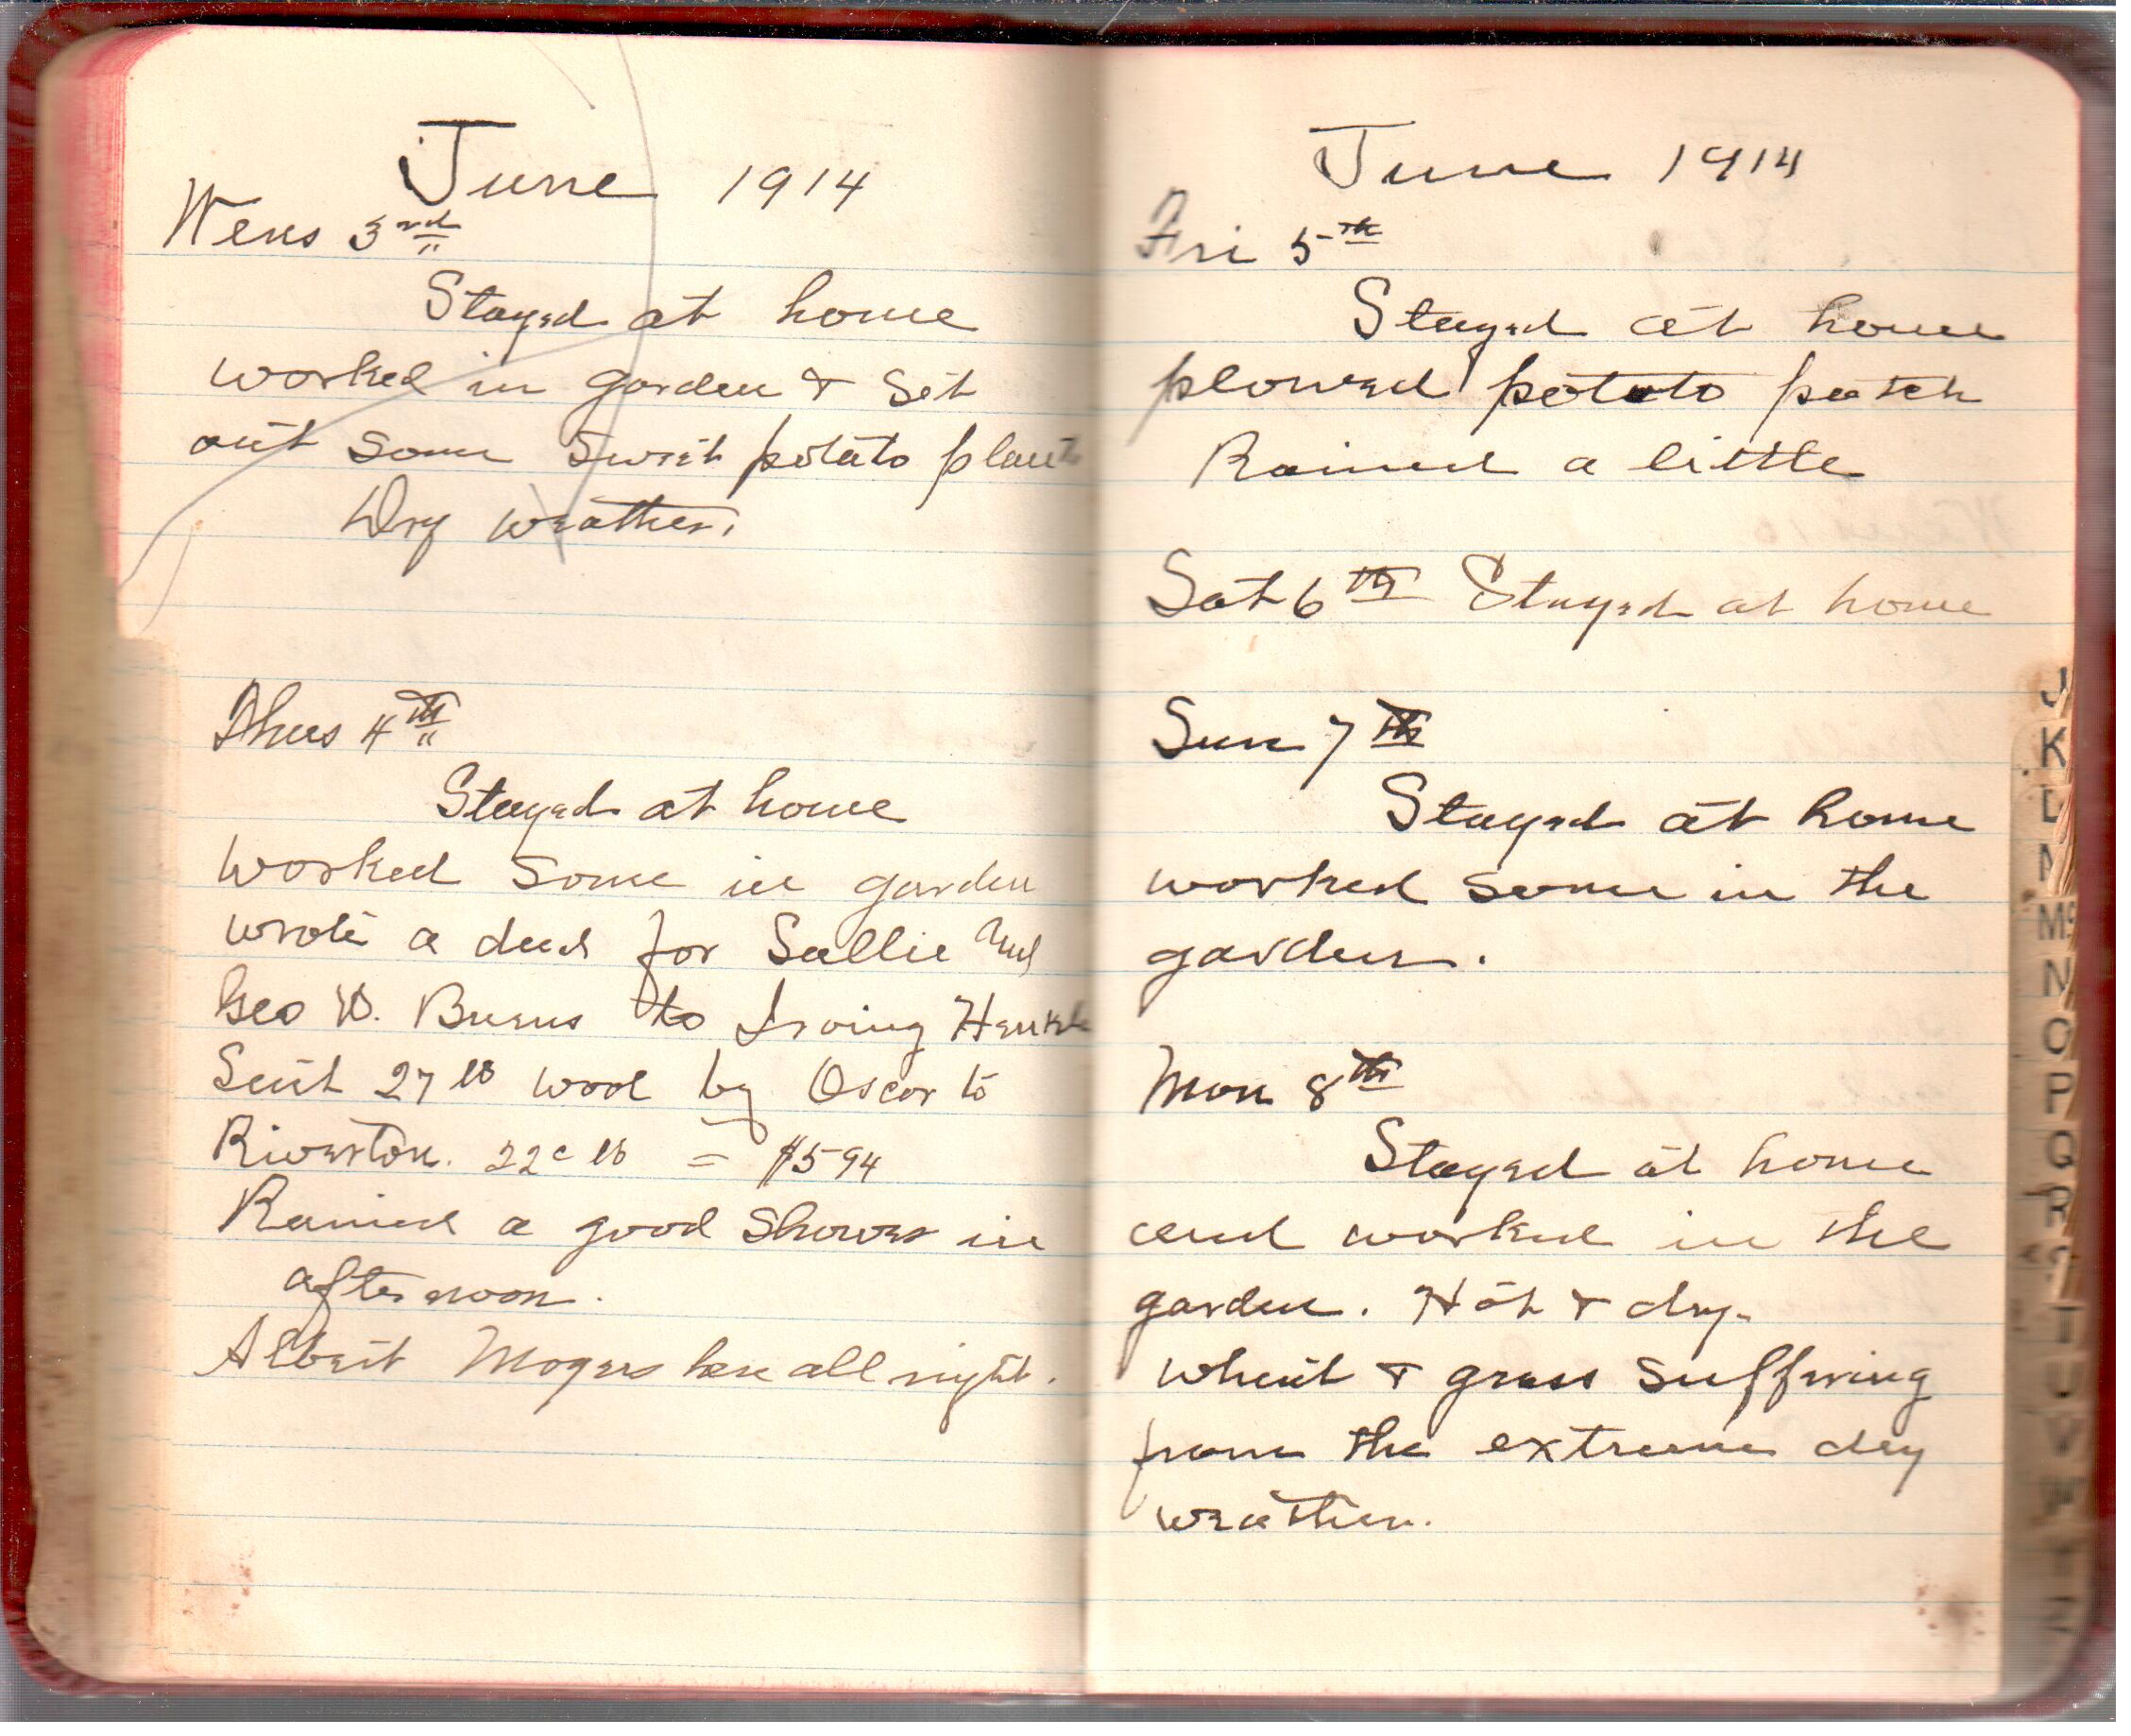 June 1914
Wens 3rd
Stayed at home
worked in garden & set
out some sweet potato plants
Dry weather.
Thus 4th
Stayed at home
worked some in garden
wrote a deed for Sallie and
Geo W. Burns to Irving
Sent 27 lb wool by Oscar to
Riverton. 22c lb = $5 94
Rained a good shower in
afternoon.
Albert Moyers here all night.
June 1914
Fri 5th
Stayed at home
plowed potato patch
Rained a little
Sat 6th Stayed at home
Sun 7th
Stayed at home
worked some in the
garden.
Mon 8th
Stayed at home
and worked in the
garden. Hot & dry.
Wheat & grass suffering
from the extreme dry
weather.
J
K
L
M
Mc
N
O
P
Q
R
S
T
U
V
W